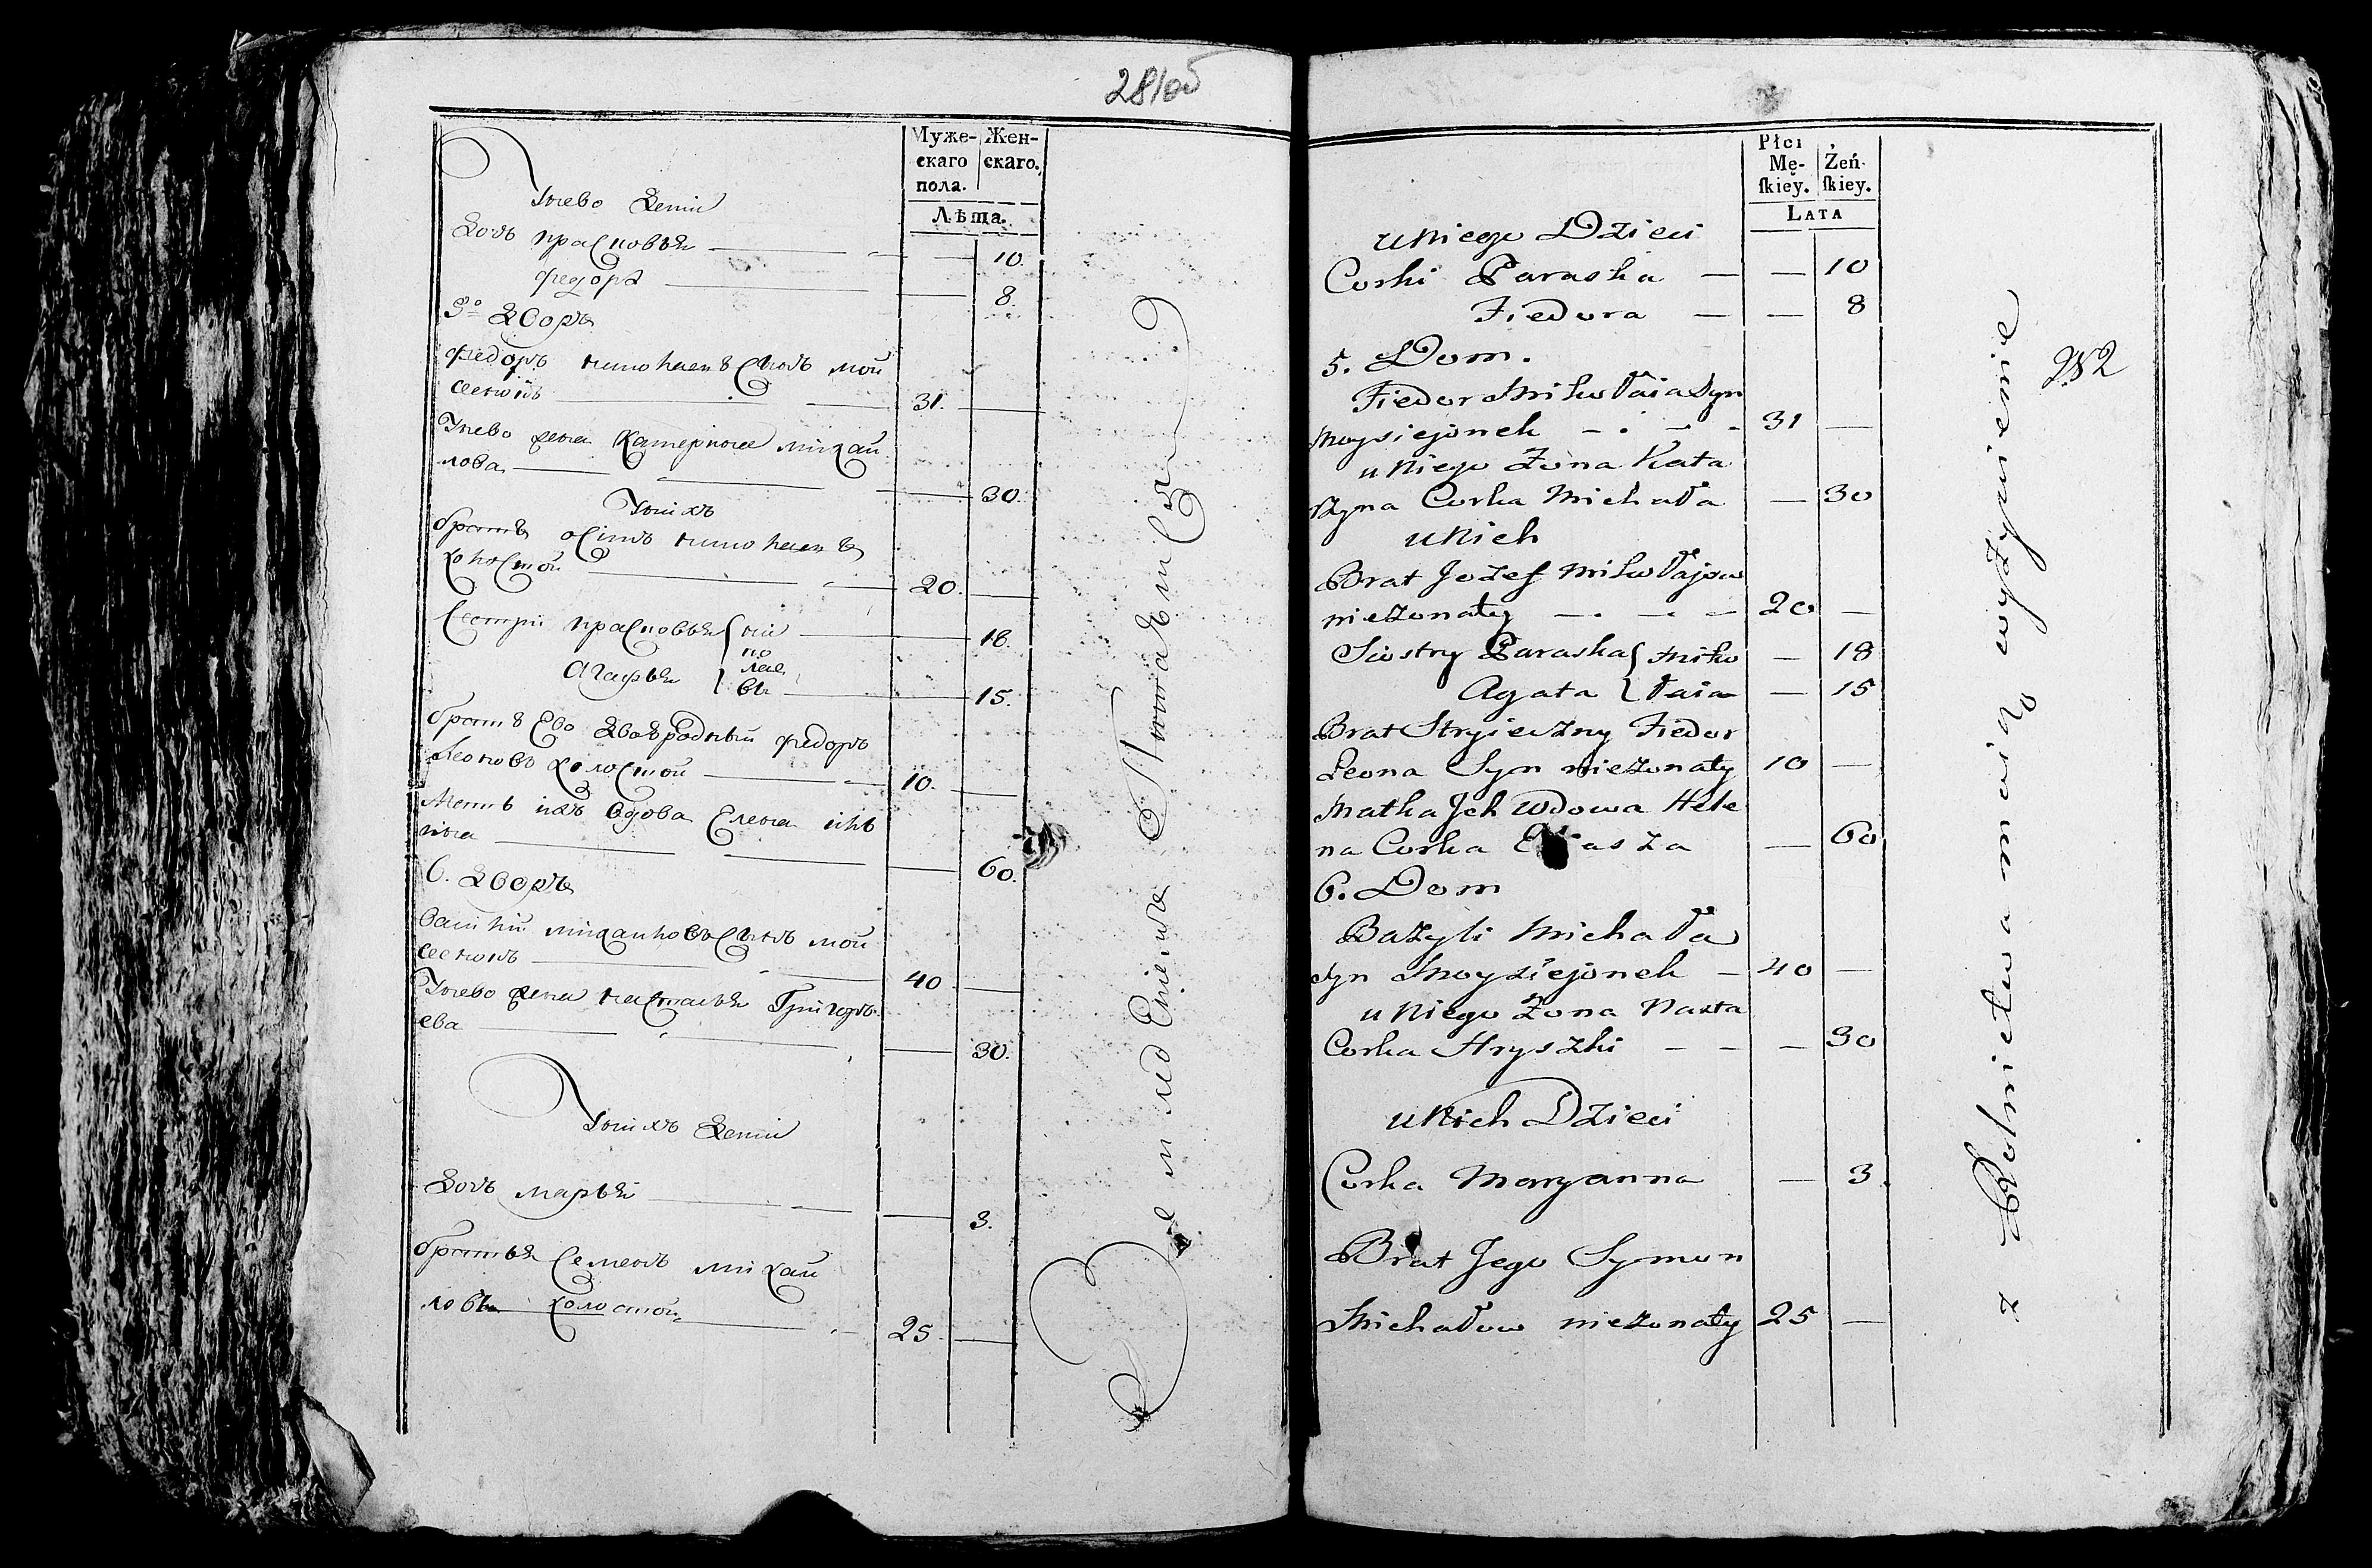 281об
Муже-
скаго
пола.
Жен-
скаго.
Лѣта.
У нево дети
Дочь прасковья — — 10.
федора — — 8.
5º дворъ
Федоръ николаевъ сынъ мои
сеенокъ — 31. —
У нево жена Катерина михаи
лова — — 30.
У них
братъ осипъ николаевъ
холостои — 20. —
Сестры прасковья { ни — 18.
ко
Агафья { лае
вы — 15.
братъ Ево двоюродный федоръ
Леоновъ холостои — 10. —
Мать ихъ вдова Елена илі
ина — — 60.
6. дворъ
Василій михаиловъ сынъ мои
сеенокъ — 40 —
У нево жена настасья Григорь
ева — — 30.
У них дети
Дочь марья — — 3.
братья Семенъ михаи
ловъ холостои — 25. —
Земледелиемъ Питается
Płci
Mę-
skiey.
Żeń-
skiey.
Lata
u Niego Dzieci
Corki Paraska — — 10
Fiedora — — 8
5. Dom.
Fiedor Mikołaia Syn
Moysiejonek — 31 —
u Niego Żona Kata
rzyna Corka Michała — 30
u Nich
Brat Jozef Mikołajow
nieżonaty — 20 —
Siostry Paraska { Miko — 18
Agata { łaia — 15
Brat Stryieczny Fiedor
Leona Syn nieżonaty 10 —
Matka Jch Wdowa Hele
na Corka Eliasza — 60
6. Dom
Bazyli Michała
Syn Moyziejonek — 40 —
u Niego Żona Nasta
Corka Hryszki — — 30
u Nich Dzieci
Corka Maryanna — 3.
Brat Jego Symon
Michałow nieżonaty 25 —
z Rolnictwa maią wyżywienie
№2